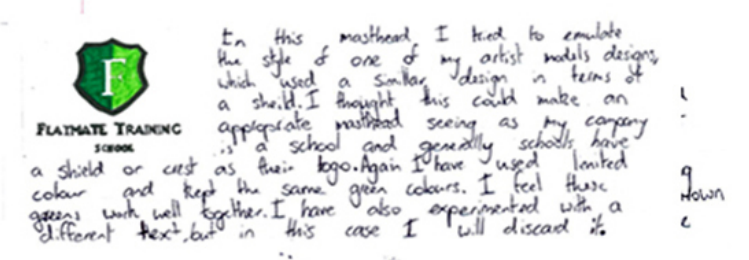 In this masthead I tried to emulate
the style of one of my artist models designs,
which used a similar design in terms of
a sheild. I thought this could make an
appropriate masthead seeing as my company
is a school and generally schools have
a shield or crest as their logo. Again I have used limited
colour and kept the same green colours. I feel these
greens work well together. I have also experimented with a
different text, but in this case I will discard it.
F
FLATMATE TRAINING
SCHOOL